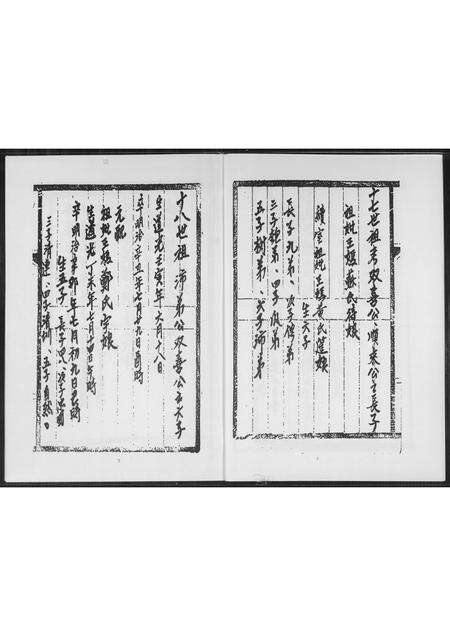 十七世祖考双喜公、順來公之長子
祖妣王媽蘇氏
繼室祖妣王媽黃氏蓮娘
生六子
長子九弟、次子
三子 弟、四子 弟、
五子樹弟、六子沛弟
十八世祖 沛弟公双喜公之六子
生道光壬寅年六月十八日
卒明治辛丑年七月十九日酉時
元配
祖妣王媽鄭氏 娘
生道光丁未年七月十四日午時
卒明治辛卯年七月初九日巳時
生五子、長子 、次子
三子清連、四子清訓、五子自然、